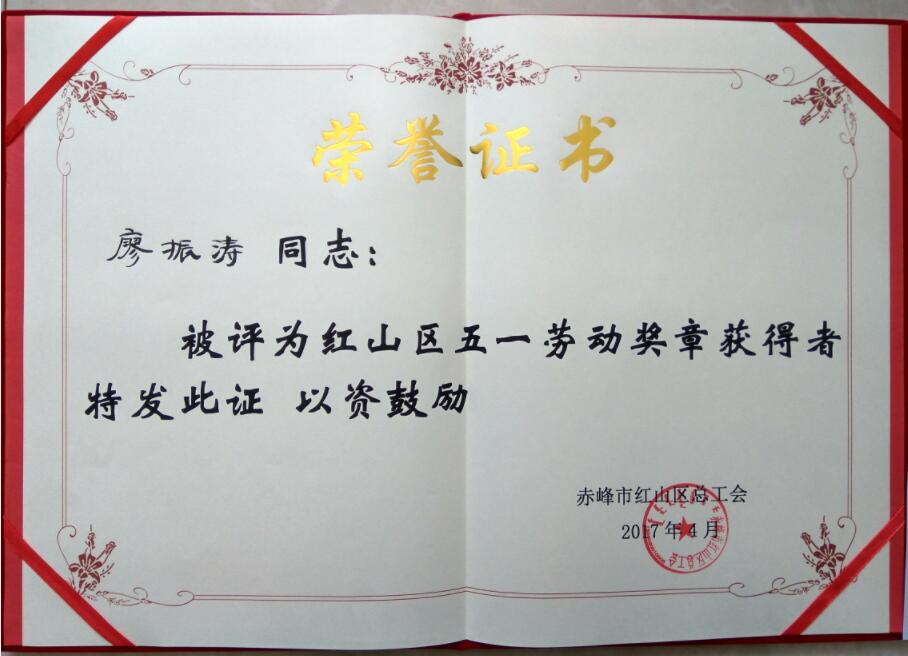 荣誉证书
廖振涛 同志：
被评为红山区五一劳动奖章获得者
特发此证 以资鼓励
赤峰市红山区总工会
2017年4月
赤峰市红山区总工会